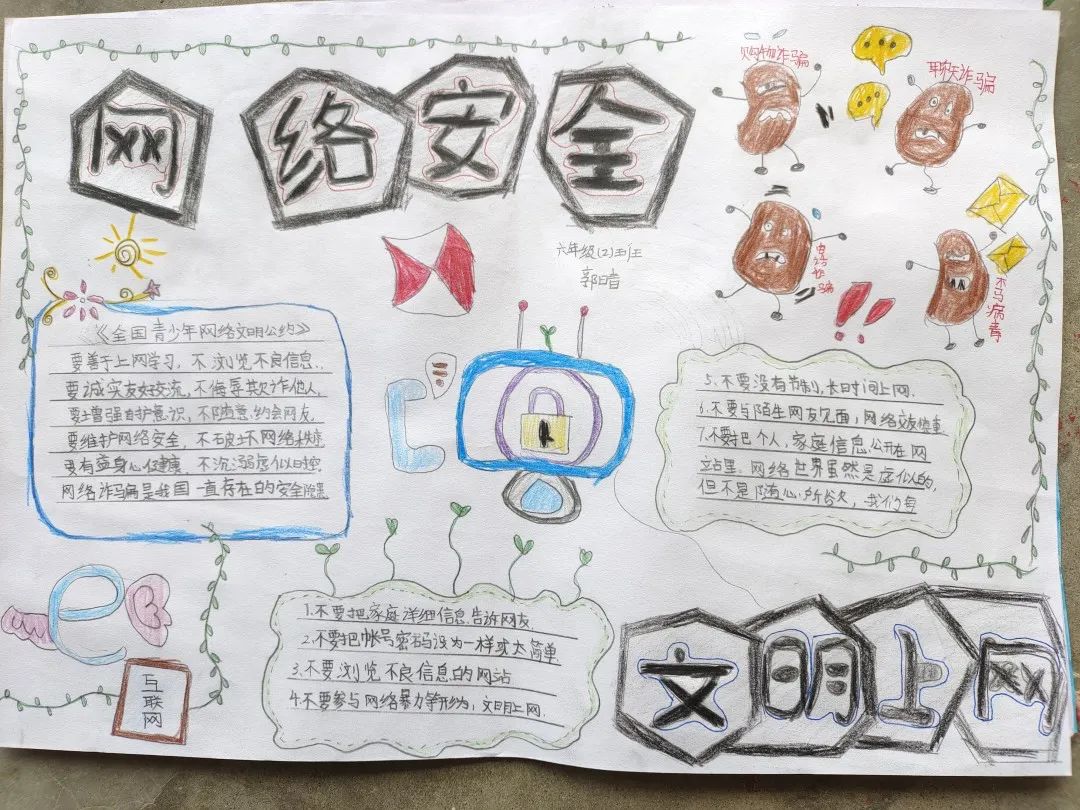 网络安全
购物诈骗
聊天诈骗
电话诈骗
木马病毒
六年级(2)班
《全国青少年网络文明公约》
要善于上网学习,不浏览不良信息.
要诚实友好交流,不侮辱欺诈他人,
要增强自护意识,不随意约会网友
要维护网络安全,不破坏网络秩序
要有益身心健康,不沉溺虚拟时空
网络诈骗是我国一直存在的安全隐患
5.不要没有节制,长时间上网.
6.不要与陌生网友见面,网络交友慎重
7.不要把个人,家庭信息公开在网
站里.网络世界虽然是虚似的,
但不是随心所欲,我们每
1.不要把家庭详细信息告诉网友.
2.不要把帐号密码设为一样或太简单
3.不要浏览不良信息的网站
4.不要参与网络暴力等行为,文明上网.
e
互联网
文明上网